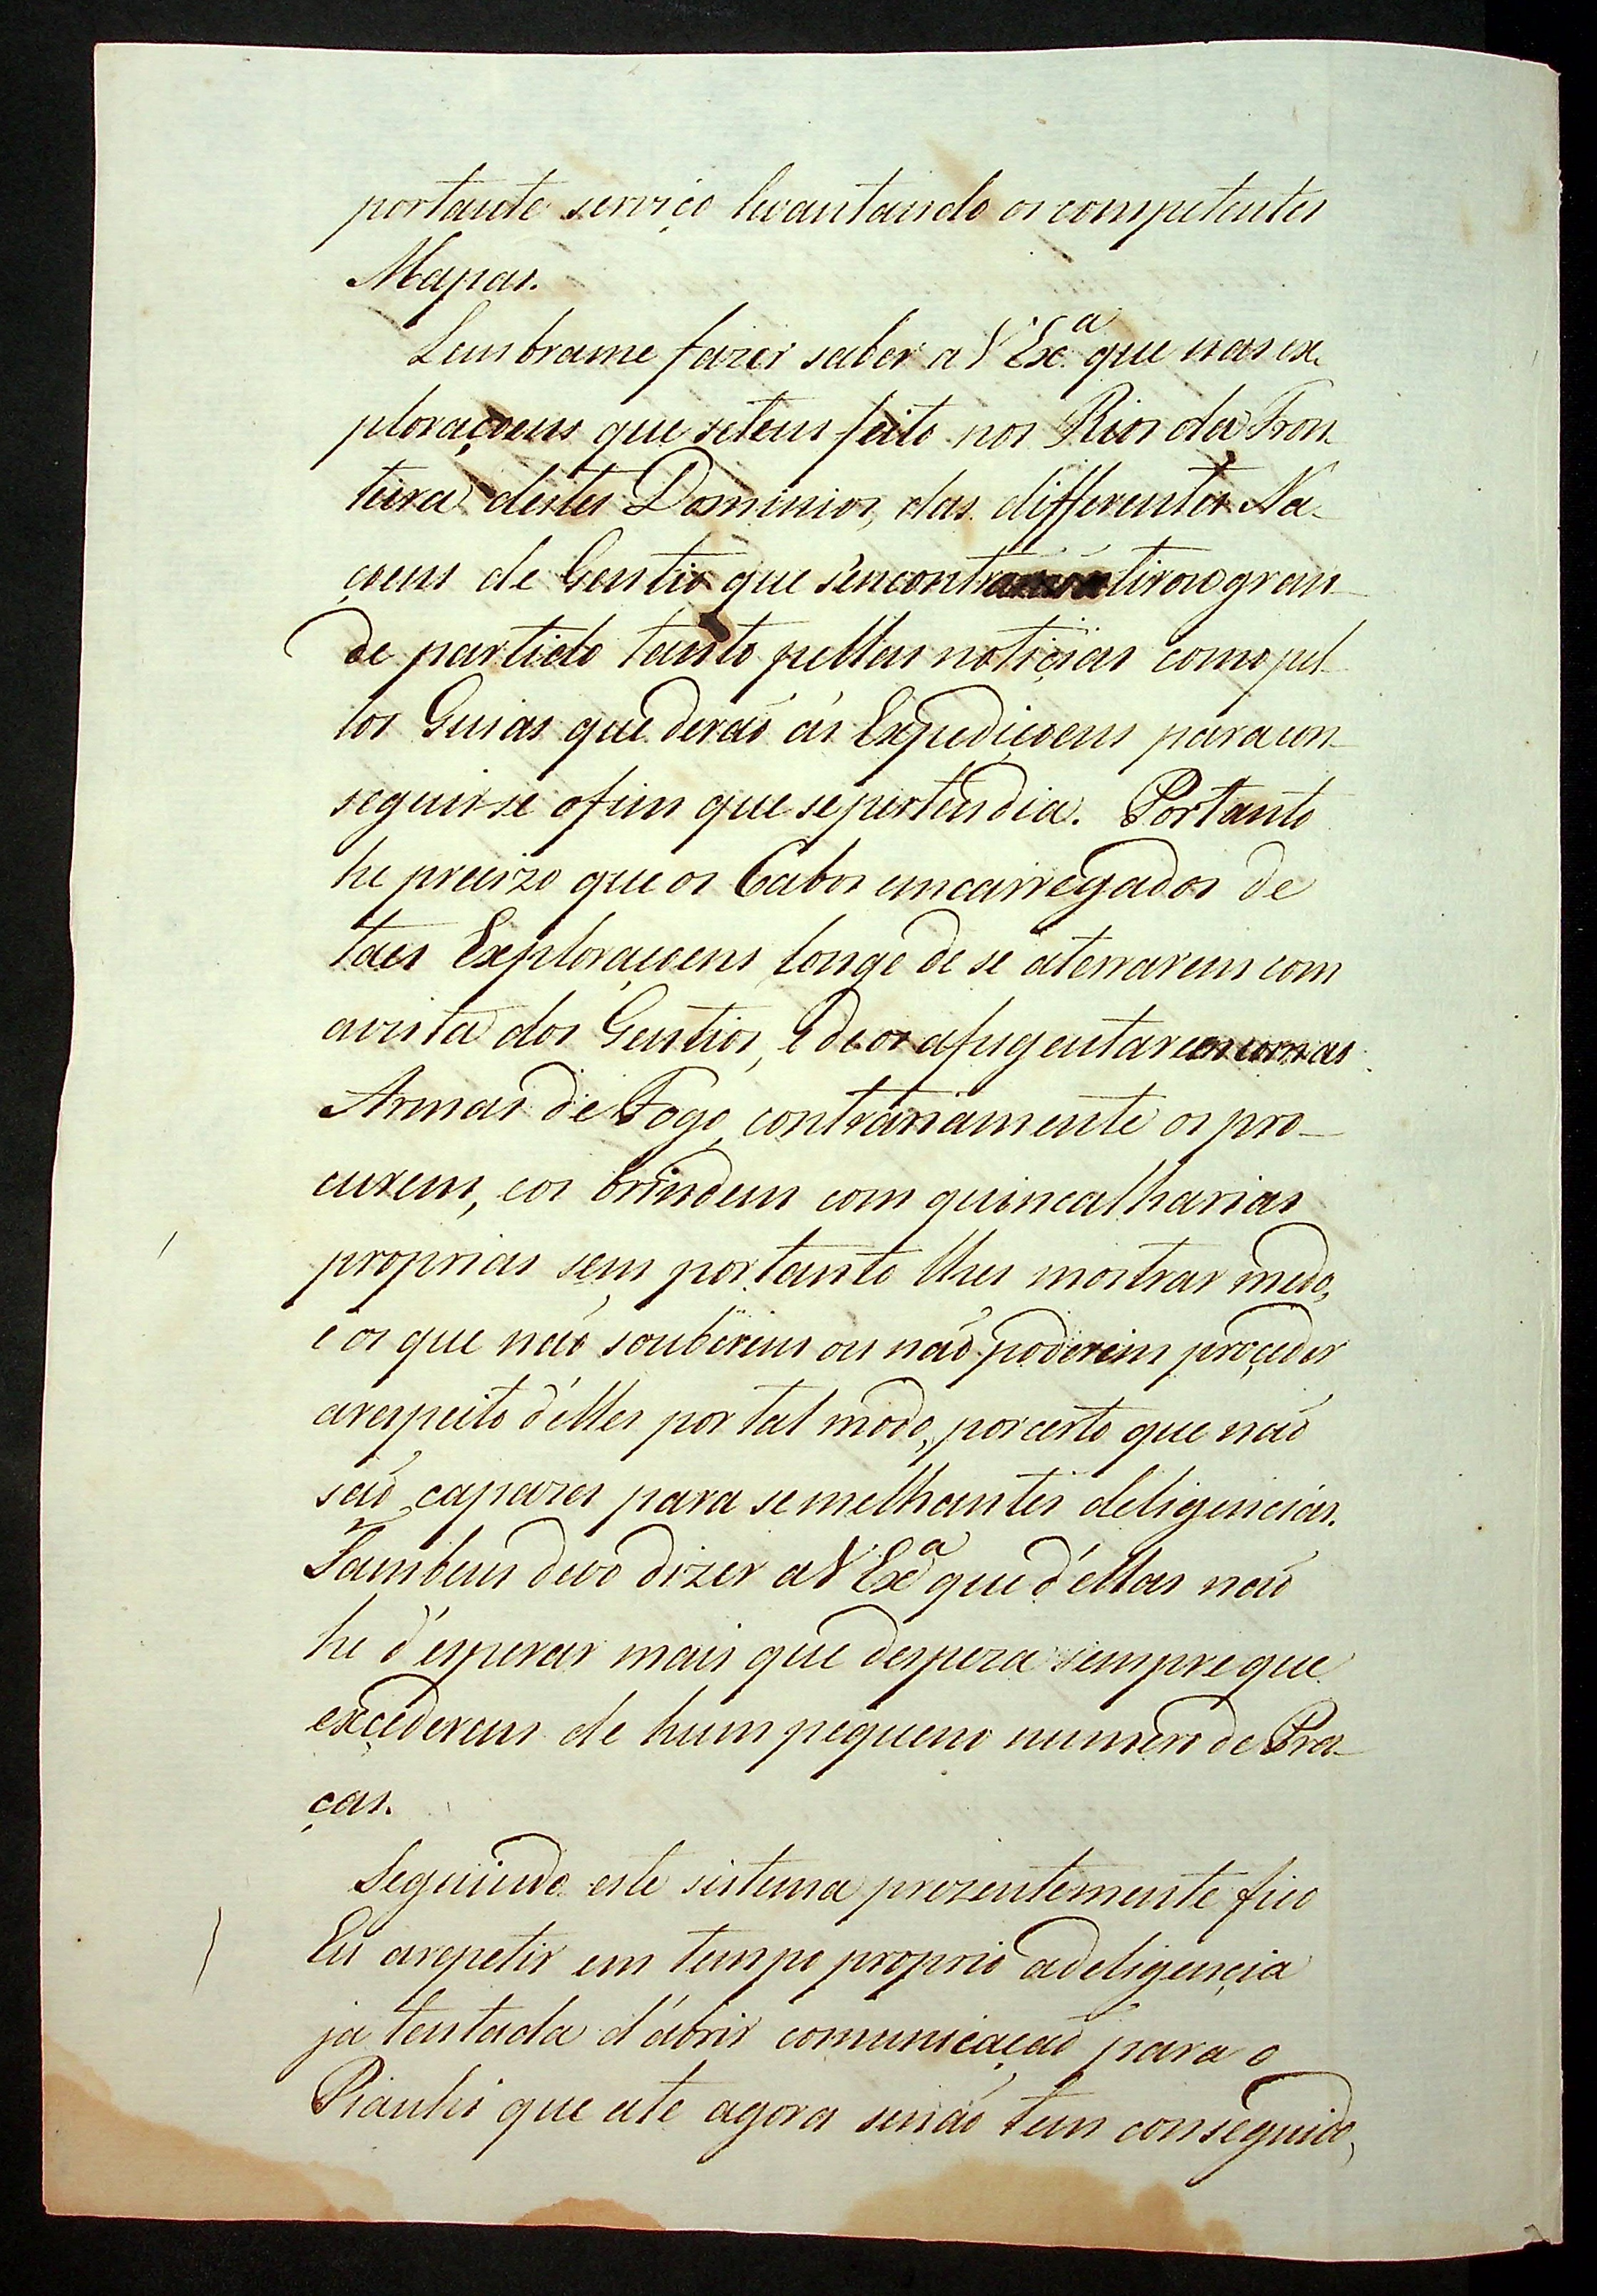 portante serviço levantando os competentes
Mapas.
Lembrame fazer saber a V Exª que nas ex-
ploraçoens que setem feito nos Rios da Fron-
teira destes Dominios, das differentes Na-
çoens de Gentio que s'encontrará tirou gran-
de partido tanto pellas noticias como pel-
los Guias que deraó ás Expediçoens para con-
seguirse ofim que sepertendia. Portanto
he precizo que os Cabos emcarregados de
taes Exploraçoens longe de se aterrarem com
avista dos Gentios, e de os afugentarem com as
Armas de Fogo, contrariamente os pro-
curem, eos brindem com quincalharias
proprias sem portanto lhes mostrar medo,
e os que naó souberem ou naó poderem proçeder
arespeito d'elles por tal modo, porcerto que naó
saó capazes para semelhantes deligencias.
Tambem devo dizer a V Exª que d'ellas naó
he d'esperar mais que despeza sempre que
exçederem de hum pequeno numero de Pra-
ças.
Seguindo este sistema prezentemente fico
Eu arepetir em tempo proprio adeligençia
ja tentada d'abrir comunicaçaó para o
Piauhi que ate agora senaó tem conseguido,